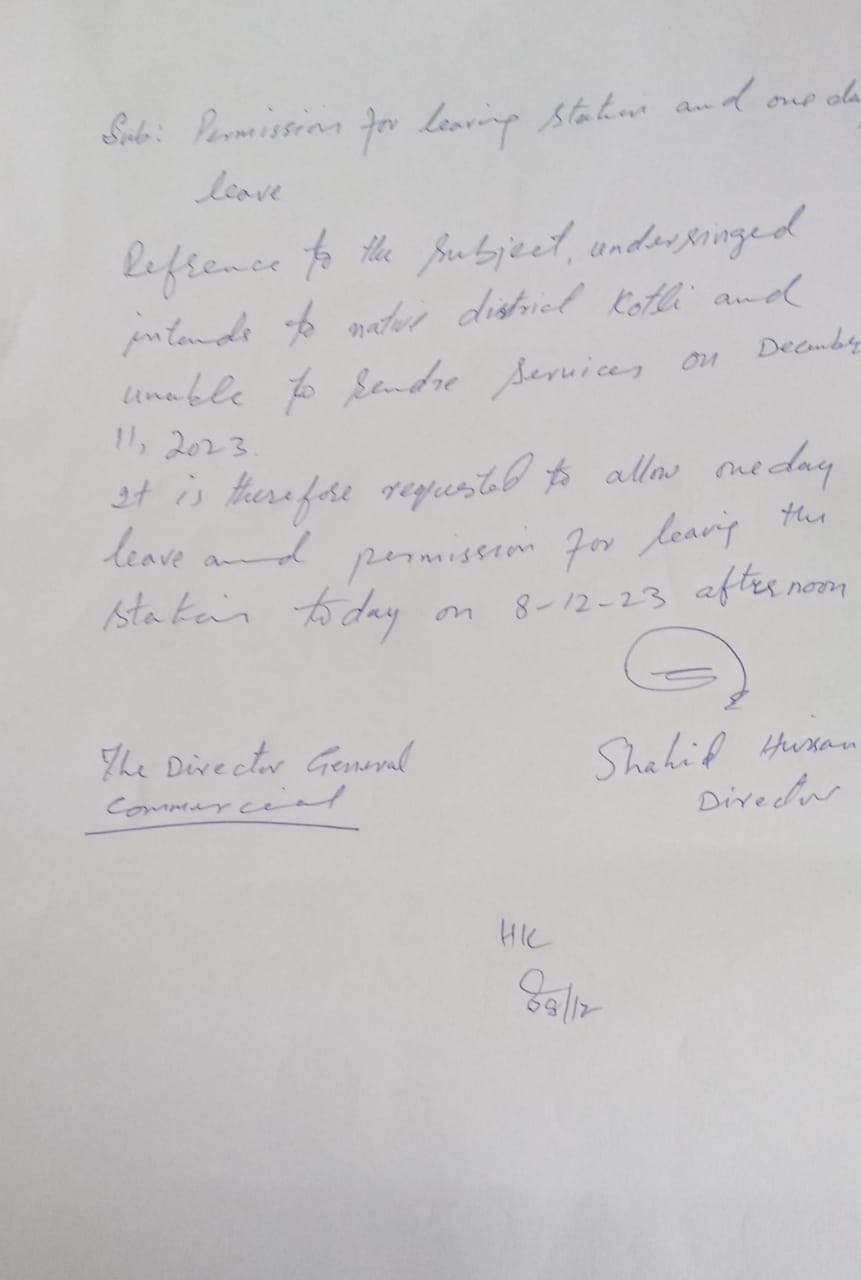 Sub: Permission for leaving station and one da
leave
Refrence to the subject, undersinged
intends to native district Kotli and
unable to rendre services on Decembe
11, 2023.
It is therefore requested to allow one day
leave and permission for leavig the
station today on 8-12-23 afternoon
The Director General
Commercial
Shahid Hussan
Director
HK
08/12